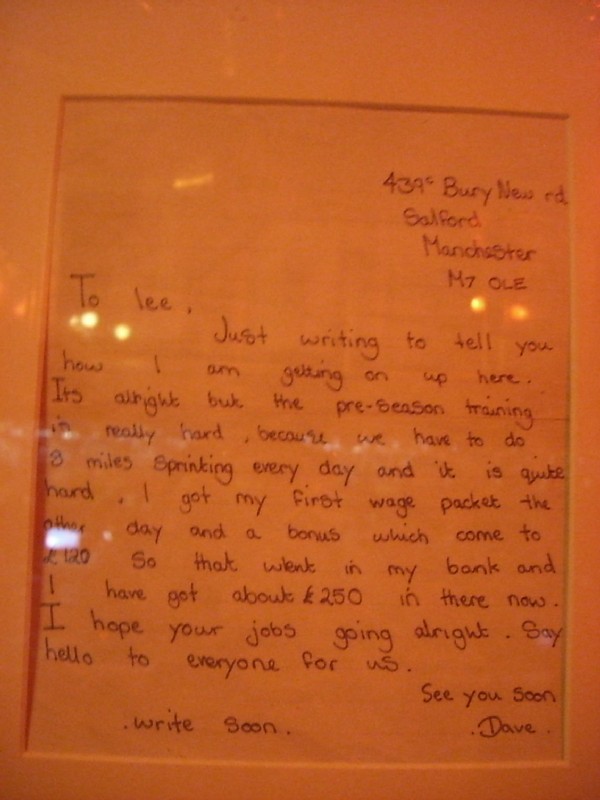 439c Bury New rd
Salford
Manchester
M7 OLE
To lee,
Just writing to tell you
how I am getting on up here.
Its alright but the pre-season training
is really hard, because we have to do
8 miles sprinting every day and it is quite
hard. I got my first wage packet the
other day and a bonus which come to
£120 So that went in my bank and
I have got about £250 in there now.
I hope your jobs going alright. Say
hello to everyone for us.
See you soon
.write soon. .Dave.